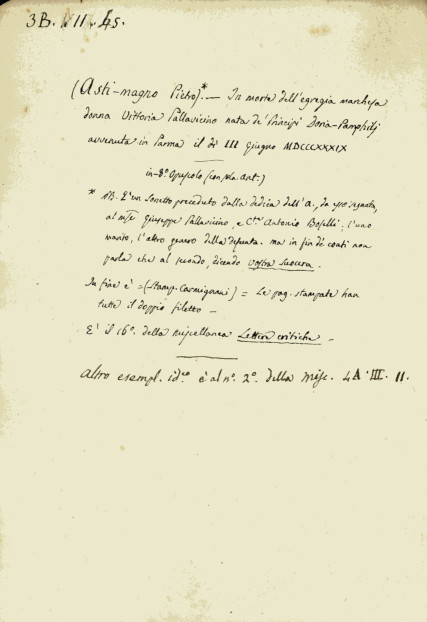 3B. II. 45.
(Asti-magno Pietro)*.— In morte dell'egregia marchesa
donna Vittoria Pallavicino nata de' Principi Doria-Pamphilj
avvenuta in Parma il dì III Giugno MDCCCXXXIX
in-8° Opuscolo (con pla. ant.)
* NB. E' un Sonetto preceduto dalla dedica dell'A., da esso segnata,
al mse Giuseppe Pallavicino, e Cte. Antonio Boselli, l'uno
marito, l'altro genero della defunta. ma in fin de conti non
parla che al secondo, dicendo vostra suocera.
In fine è =(Stamp. Carmignani) = Le pag. stampate han
tutte il doppio filetto —
E' il 16°. della miscellanea Lettere critiche —
Altro esempl. id.co è al n°. 2°. della Misc. 4A. III. 11.